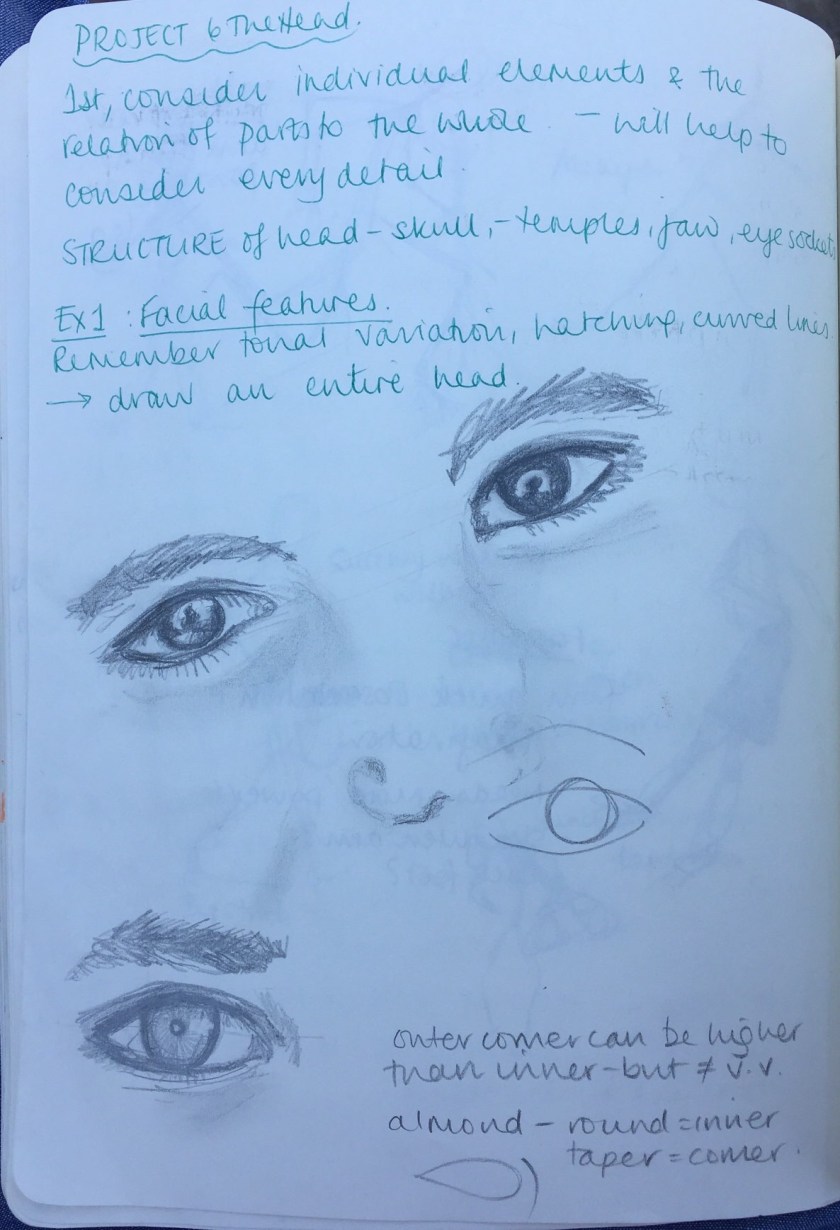 PROJECT 6 The Head.
1st, consider individual elements & the
relation of parts to the whole - will help to
consider every detail.
STRUCTURE of head - skull, - temples, jaw, eye sockets
Ex1 : Facial features.
Remember tonal variation, hatching, curved lines
→ draw an entire head.
outer corner can be higher
than inner - but ≠ v.v.
almond - round = inner
taper = corner.